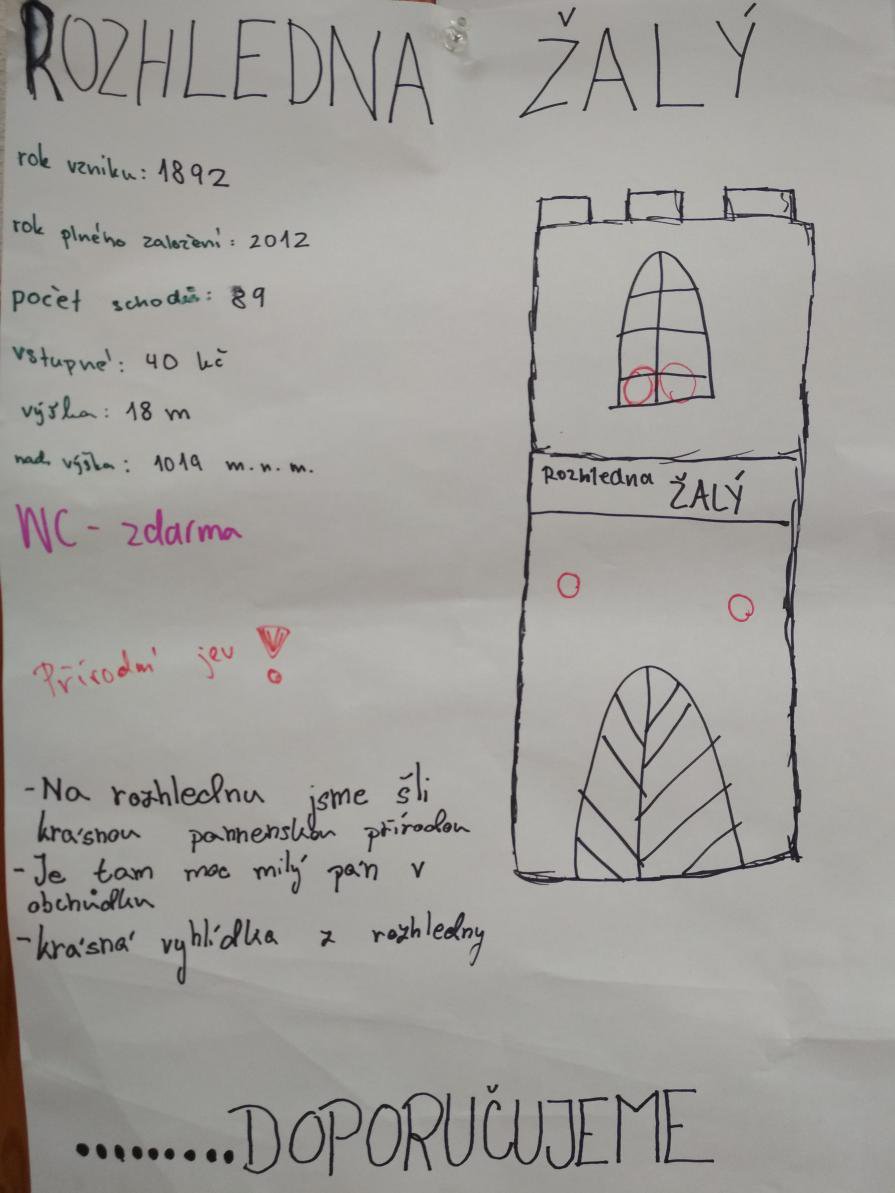 ROZHLEDNA ŽALÝ
rok vzniku: 1892
rok plného založení: 2012
počet schodů: 89
vstupné: 40 kč
výška: 18 m
nad. výška: 1019 m.n.m.
WC - zdarma
Přírodní jev !
Rozhledna ŽALÝ
- Na rozhlednu jsme šli
krásnou pannenskou přírodou
- Je tam moc milý pán v
obchůdku
- krásná vyhlídka z rozhledny
.........DOPORUČUJEME